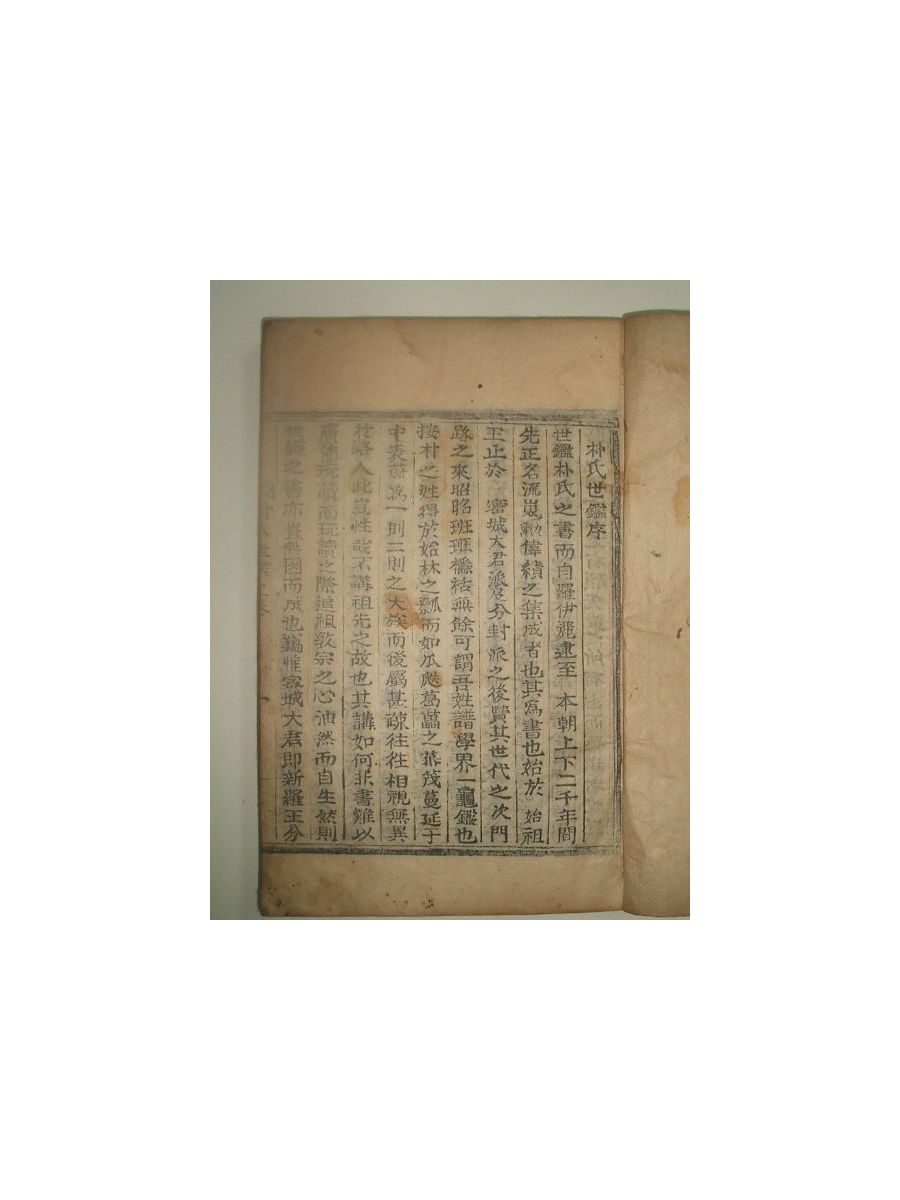 朴氏世鑑序
世鑑朴氏之書而自羅伊麗逮至 本朝上下二千年間
先正名流嵬勳偉績之集成者也其爲書也始於 始祖
王止於 密城大君派君分封派之後賢其世代之次門
路之來昭昭班班無餘可謂吾姓譜學界一龜鑑也
按朴之姓得於始林之瓢而如瓜瓞葛藟之蕃茂蔓延于
中表爲一則二則之大族而後屬甚疎往往相視無異
於路人此豈性哉不講祖先之故也其講如何非書難以
而玩讀之際追祖敦宗之心油然而自生然則
世鑑之書亦豈無因而成也竊惟密城大君即新羅王分